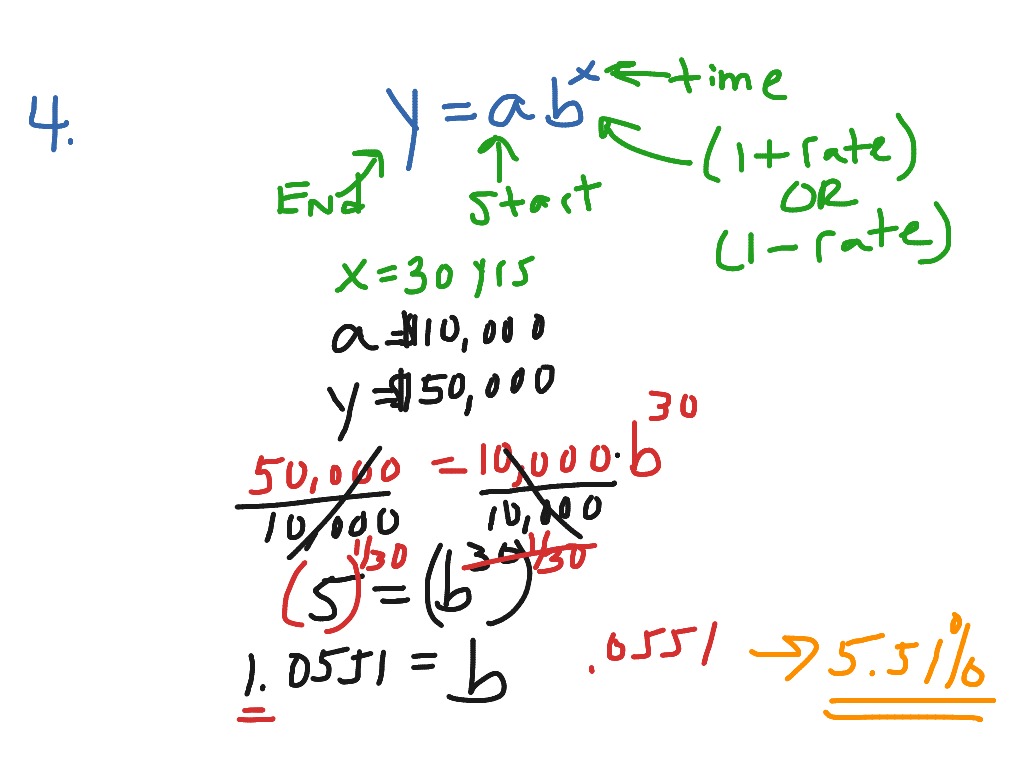 4. y = ab^x ← time
(1 + rate)
End start OR
(1 - rate)
x = 30 yrs
a = $10,000
y = $50,000
50,000/10,000 = 10,000 · b^30/10,000
(5)^1/30 = (b^30)^1/30
1.0551 = b .0551 → 5.51%